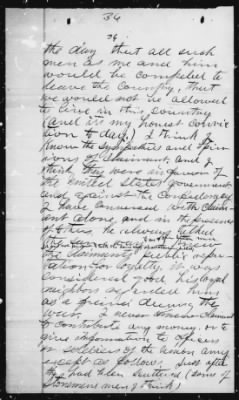 34
34
the day that all such
men as me and him
would be compelled to
leave the Country, that
we would not be allowed
to live in this Country
(and it's my honest convic-
tion to day.) I think I
know the sympathies and opin-
ions of Claimant, and I
think they were in favor of
the United States government
and against the Confederacy
I have conversed with Claim-
ant alone, and in the presence
of others, he always talked
the claimants public repu-
tation for loyalty, it was
considered good, his loyal
neighbors regarded him
as a friend during the
war, I never knew claimant
to contribute any money, or to
give information to officers
or soldiers of the union army
except as follows. Just after
they had been scattered (some of
Stonemans men I think)